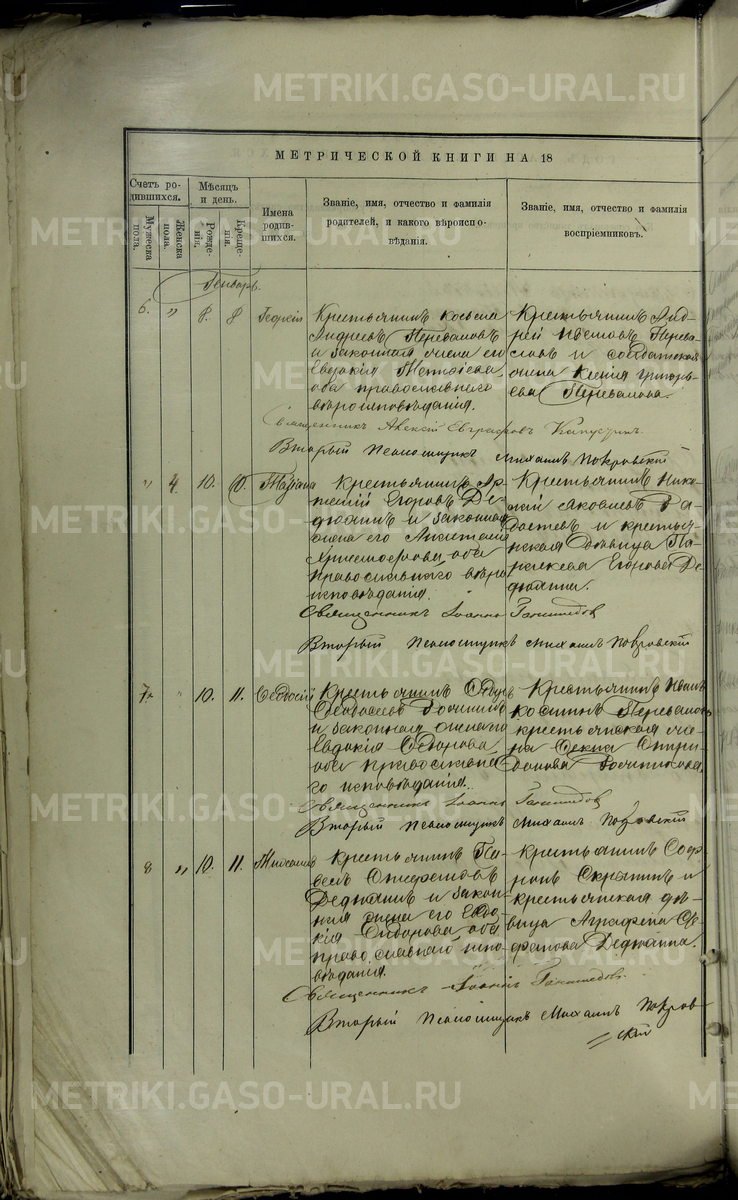 METRIKI.GASO-URAL.RU
МЕТРИЧЕСКОЙ КНИГИ НА 18
Счетъ ро-
дившихся.
Мужеска
пола.
Женска
пола.
Мѣсяцъ
и день.
Рожде-
нія.
Креще-
нія.
Имена
родив-
шихся.
Званіе, имя, отчество и фамилія
родителей, и какого вѣроиспо-
вѣданія.
Званіе, имя, отчество и фамилія
воспріемниковъ.
Генварь.
6. " 8. 8 Георгій
Крестьянинъ Косьма
Андреевъ Переваловъ
и законная жена его
Евдокія
оба православнаго
вѣроисповѣданія.
Крестьянинъ Анд-
рей Перева-
ловъ и солдатская
жена Ксенія Григорь-
ева Перевалова.
Священникъ Алексій Евграфовъ Капустинъ
Второй Псаломщикъ Михаилъ Покровскій
" 4. 10. 10. Татіана
Крестьянинъ Ар-
темій Егоровъ Де-
дюхинъ и законная
жена его Анастасія
оба
православнаго вѣро
исповѣданія.
Крестьянинъ Нико-
лай Яковлевъ
и крестья-
нская дѣвица Па-
раскева Егорова Де-
дюхина.
Священникъ Іоаннъ
Второй Псаломщикъ Михаилъ Покровскій
7. " 10. 11. Ѳеодосій
Крестьянинъ Ѳедоръ
и законная жена его
Евдокія Ѳедорова,
оба православна
го исповѣданія.
Крестьянинъ Иванъ
Косминъ Переваловъ
крестьянская же-
на Ѳекла
Священникъ Іоаннъ
Второй Псаломщикъ Михаилъ Покровскій
8 " 10. 11. Михаилъ
Крестьянинъ Па-
велъ
Дедюхинъ и закон-
ная жена его Евдо-
кія Сидорова, оба
православнаго испо-
вѣданія.
Крестьянинъ Соф-
ронъ и
крестьянская дѣ-
вица Аграфена Сте-
фанова Дедюхина.
Священникъ Іоаннъ
Второй Псаломщикъ Михаилъ Покров
скій